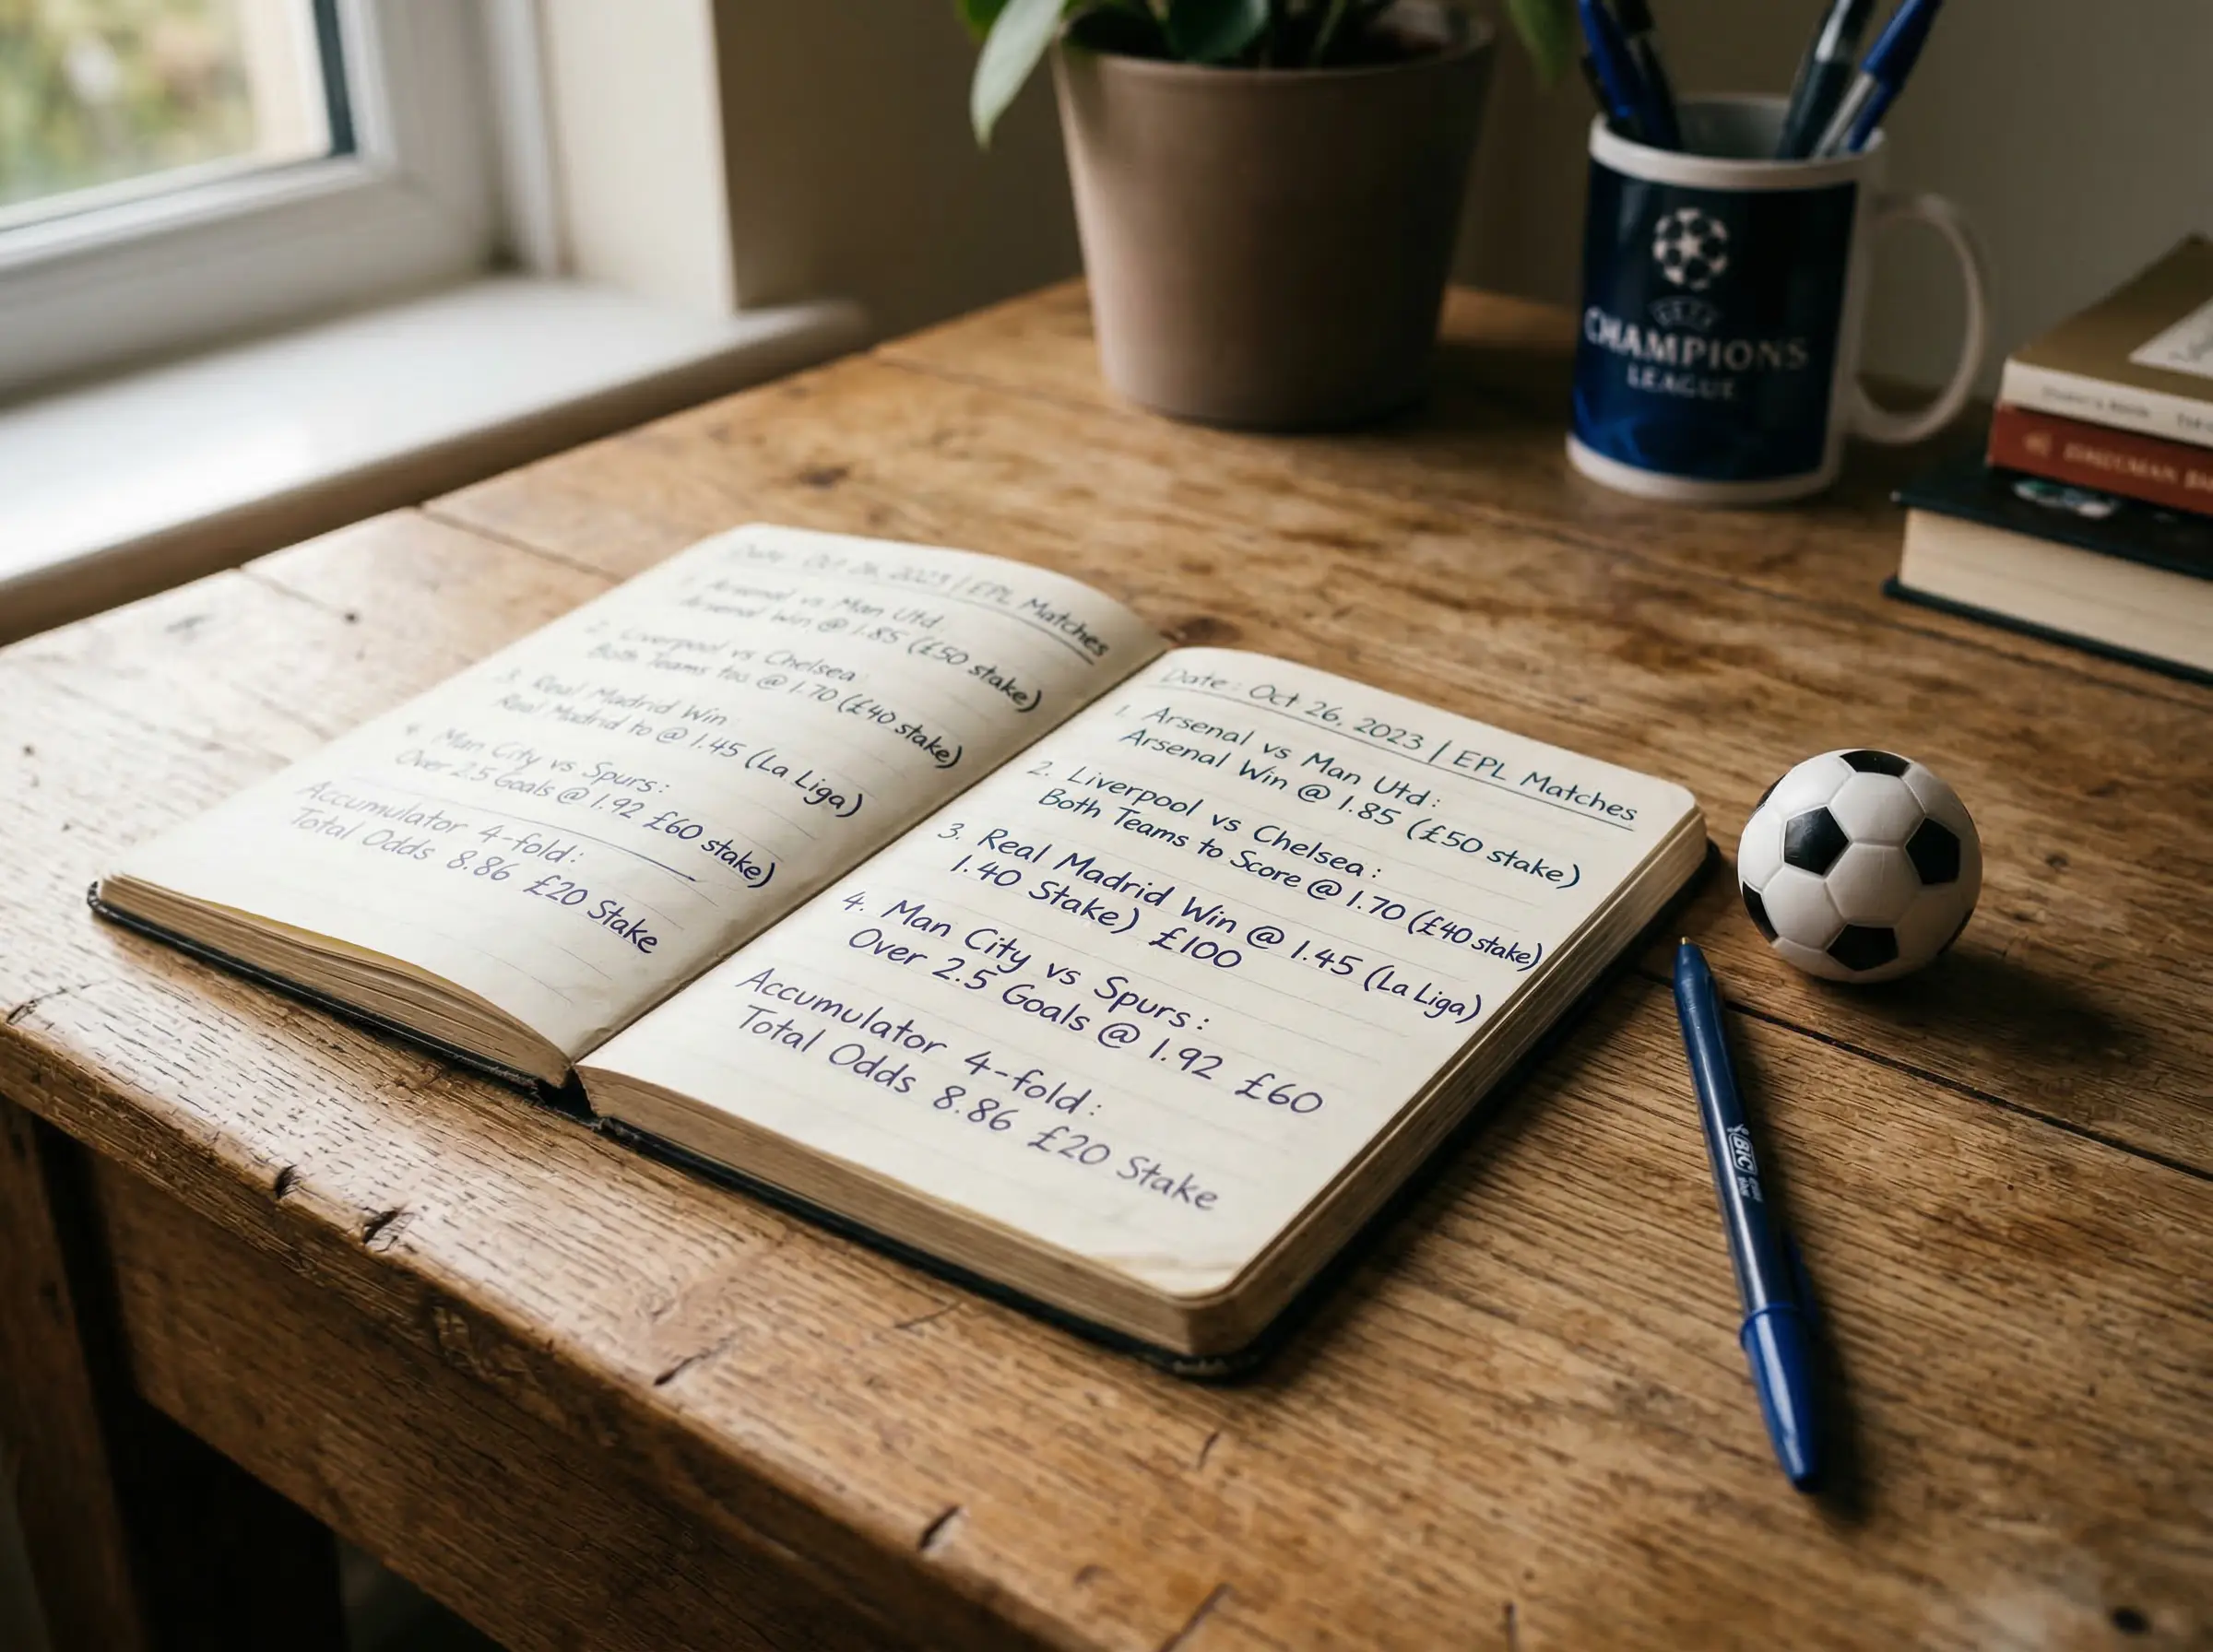 Date: Oct 26, 2023 | EPL Matches
1. Arsenal vs Man Utd
Arsenal Win @ 1.85 (£50 stake)
2. Liverpool vs Chelsea
Both Teams too @ 1.70 (£40 stake)
3. Real Madrid Win
Real Madrid to @ 1.45 (La Liga)
4. Man City vs Spurs:
Over 2.5 Goals @ 1.92 £60 stake)
Accumulator 4-fold:
Total Odds 8.86 £20 Stake
Date: Oct 26, 2023 | EPL Matches
1. Arsenal vs Man Utd:
Arsenal Win @ 1.85 (£50 stake)
2. Liverpool vs Chelsea:
Both Teams to Score @ 1.70 (£40 stake)
3. Real Madrid Win @ 1.45 (La Liga)
1.40 Stake) £100
4. Man City vs Spurs:
Over 2.5 Goals @ 1.92 £60
Accumulator 4-fold:
Total Odds 8.86 £20 Stake
CHAMPIONS
LEAGUE
BIC